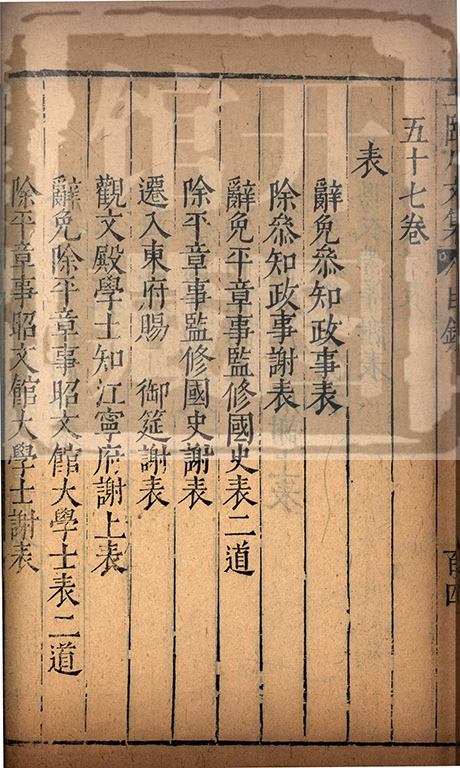 五十七卷
表
辭免叅知政事表
除叅知政事謝表
辭免平章事監修國史表二道
除平章事監修國史謝表
遷入東府賜 御筵謝表
觀文殿學士知江寧府謝上表
辭免除平章事昭文館大學士表二道
除平章事昭文館大學士謝表